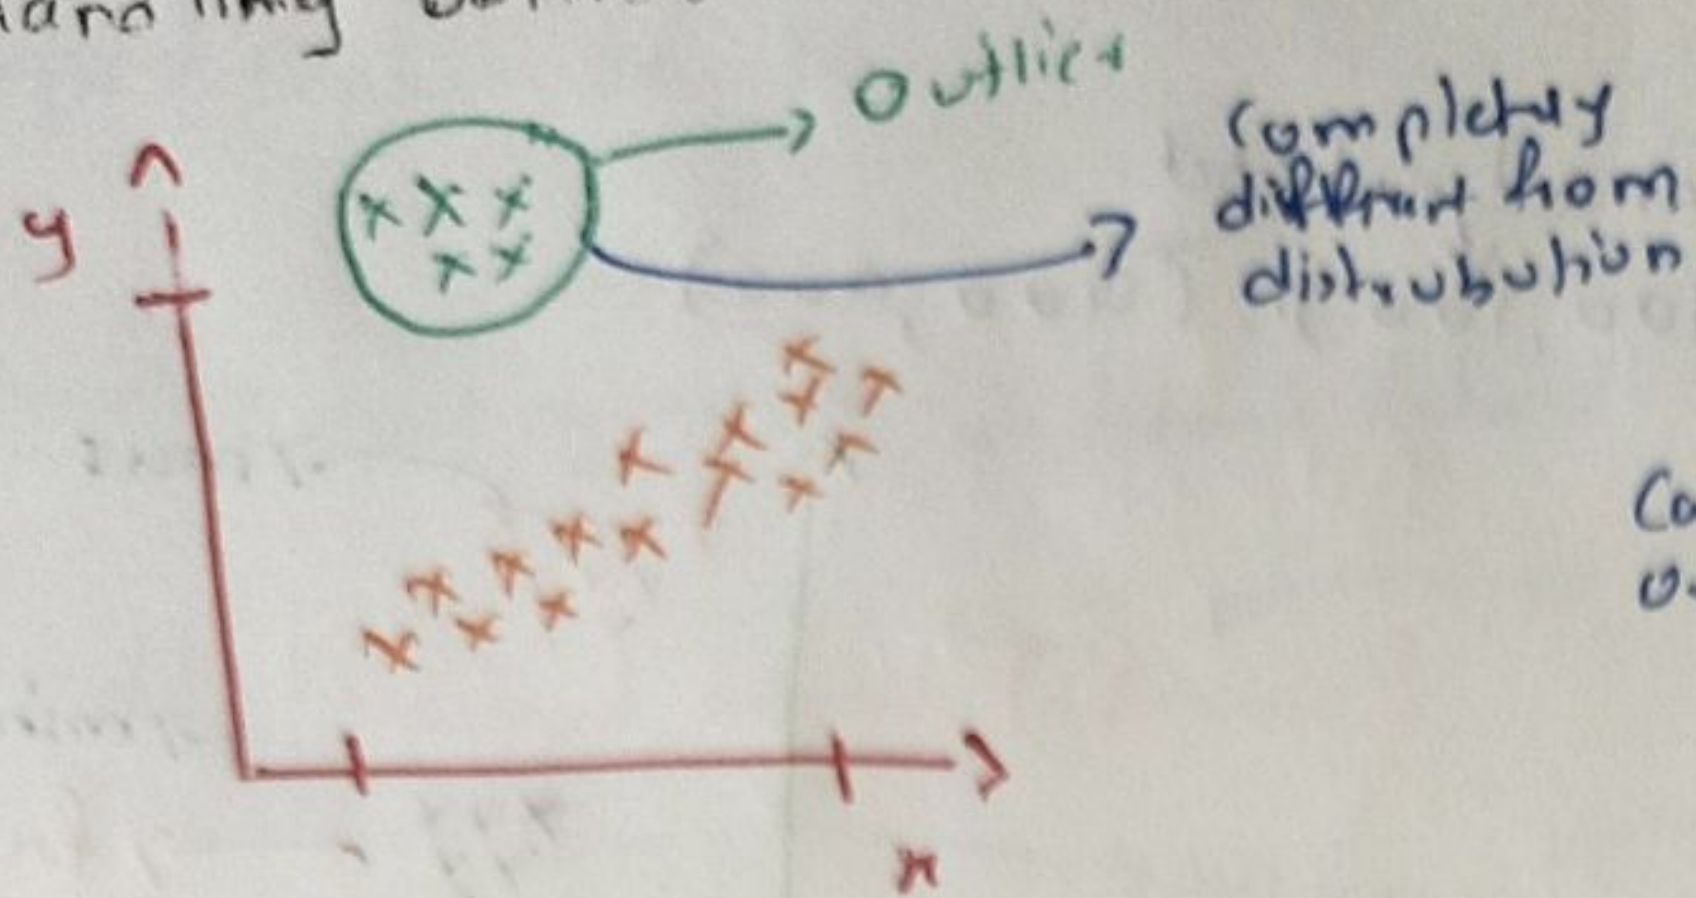 Outlier
Completely
different from
distribution
y
x
Co